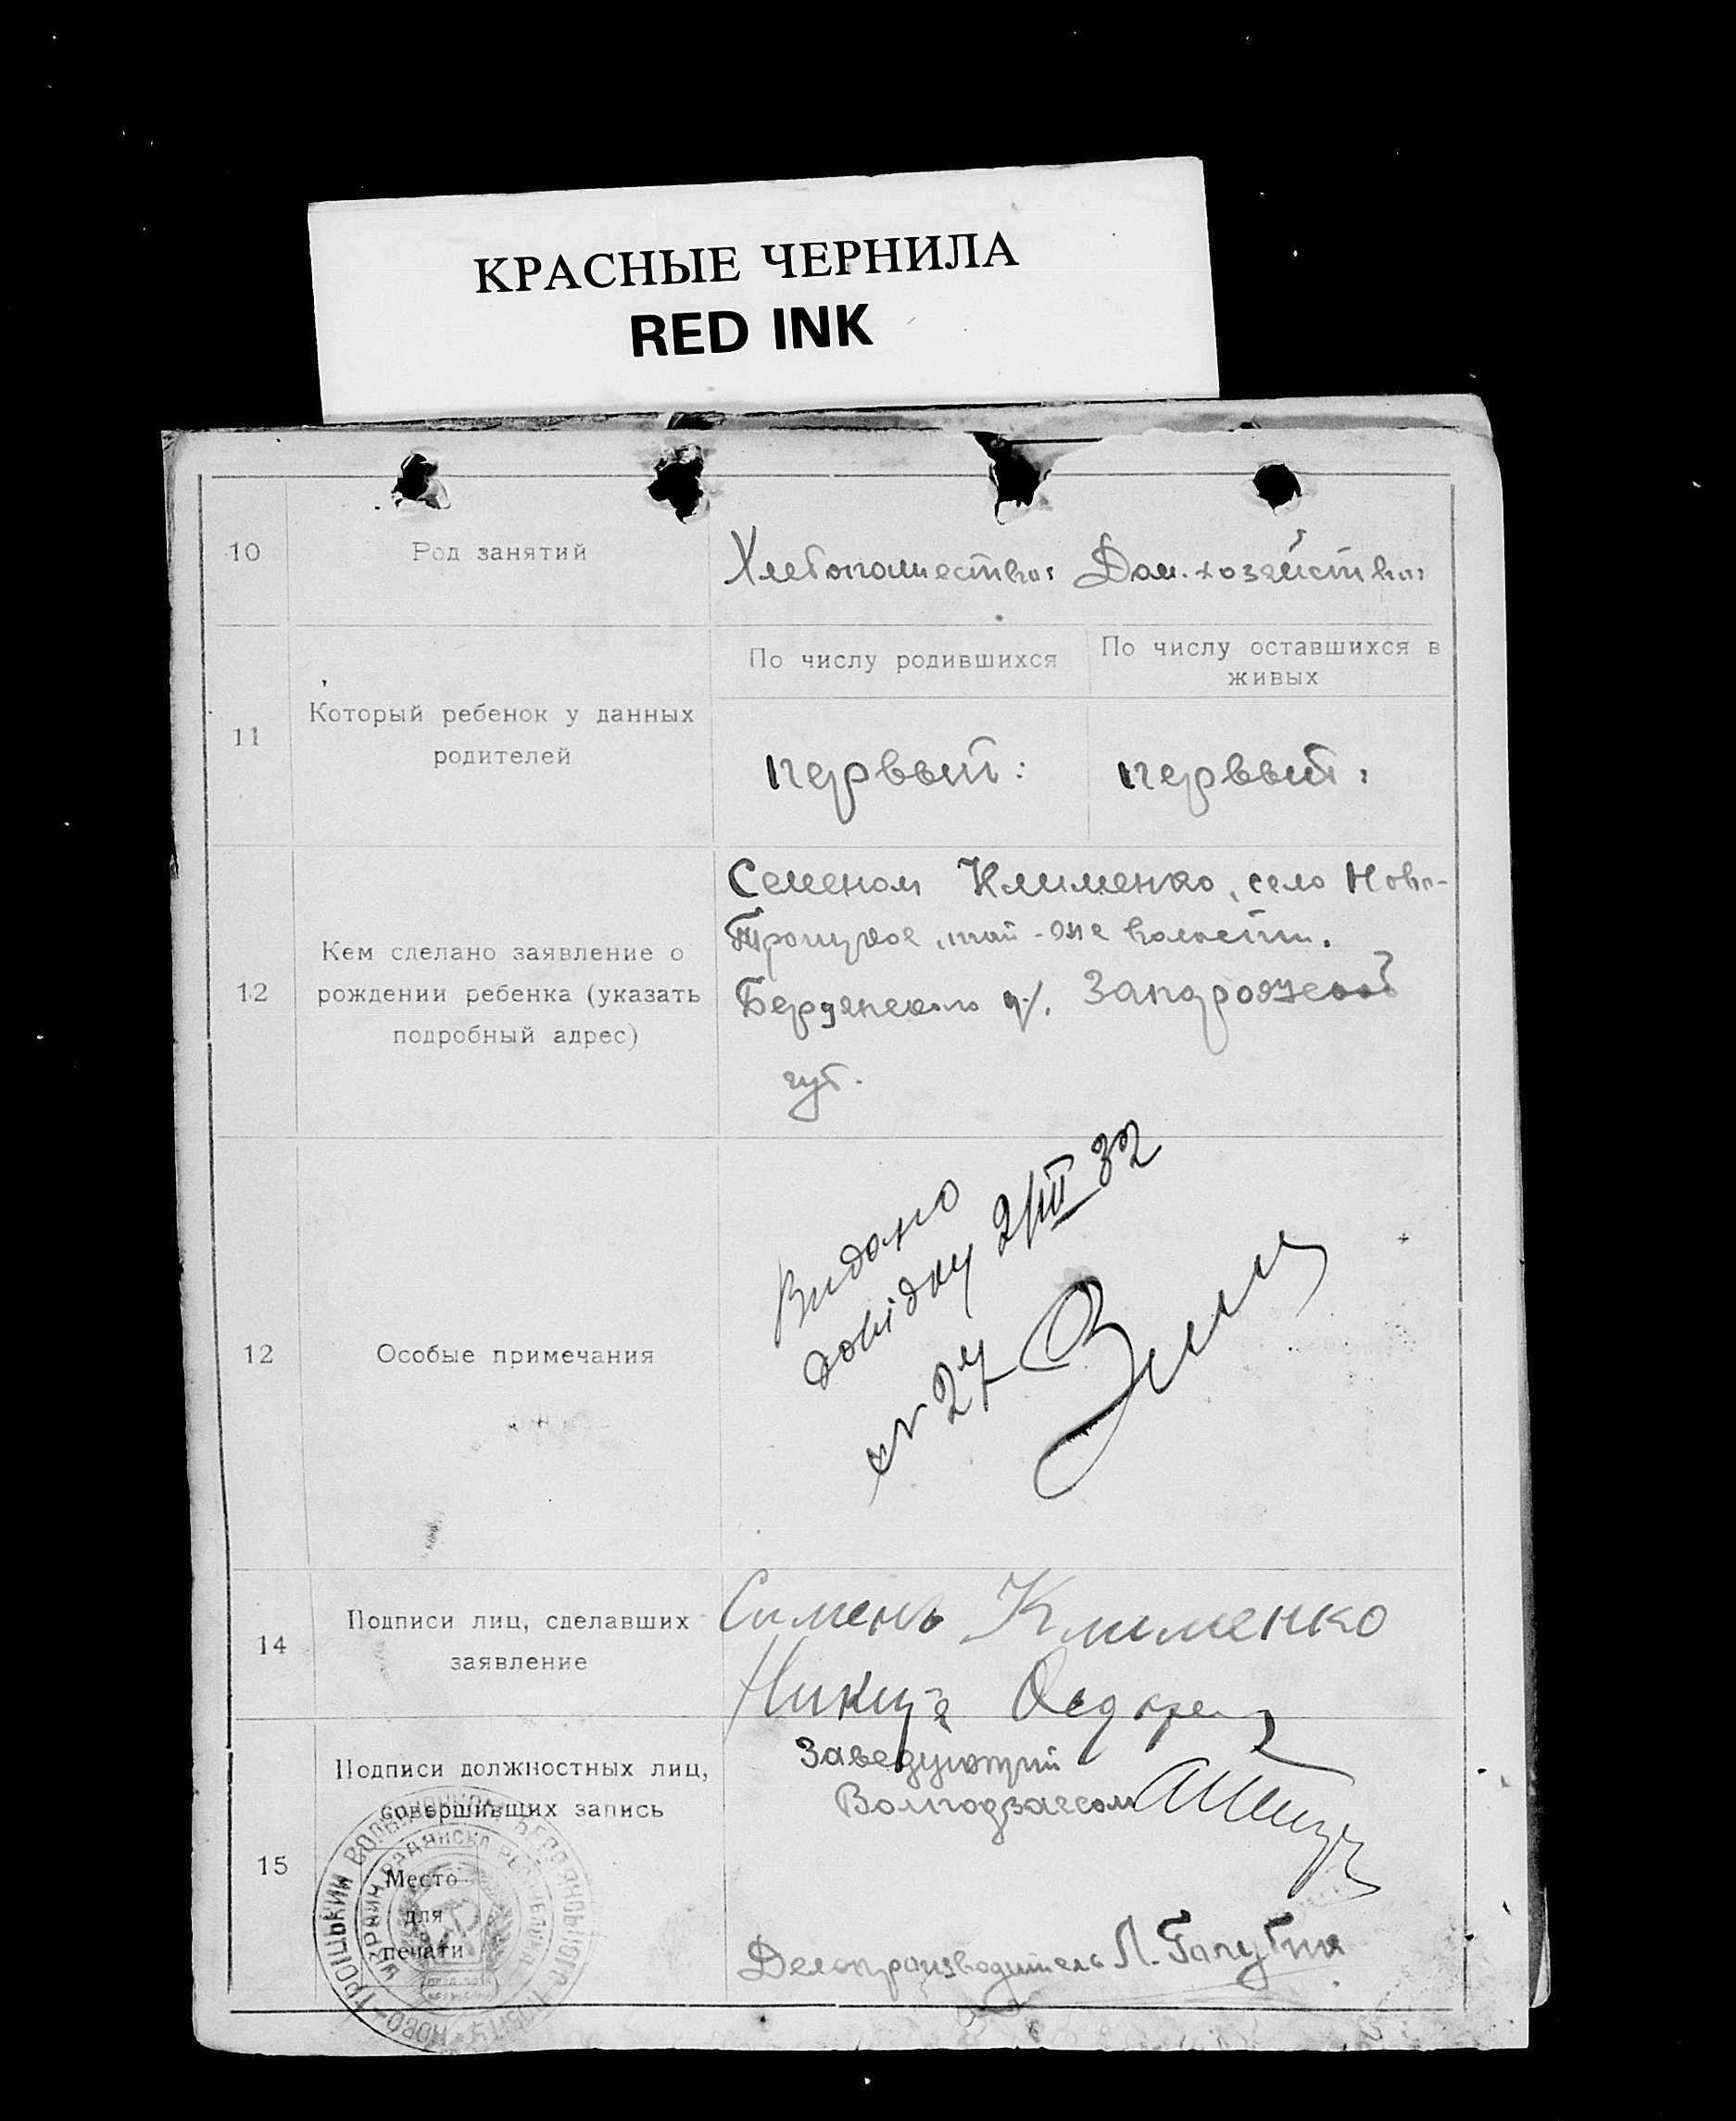 КРАСНЫЕ ЧЕРНИЛА
RED INK
10 Род занятий Хлебопашество: Дом. хозяйство:
По числу родившихся По числу оставшихся в живых
11 Который ребенок у данных
родителей
первый: первый:
12 Кем сделано заявление о
рождении ребенка (указать
подробный адрес)
Семеном Клименко, село Ново-
Троицкое, той-же волости.
Бердянского у. Запорожской
губ.
12 Особые примечания
Видано
довідку 2/III 32
№ 27
14 Подписи лиц, сделавших
заявление
Симень Клименко
Никита
15 Подписи должностных лиц,
совершивших запись
Заведующий
Волподзагсом
Место
для
печати
Делопроизводитель Л.
НОВО-ТРОЇЦЬКИЙ